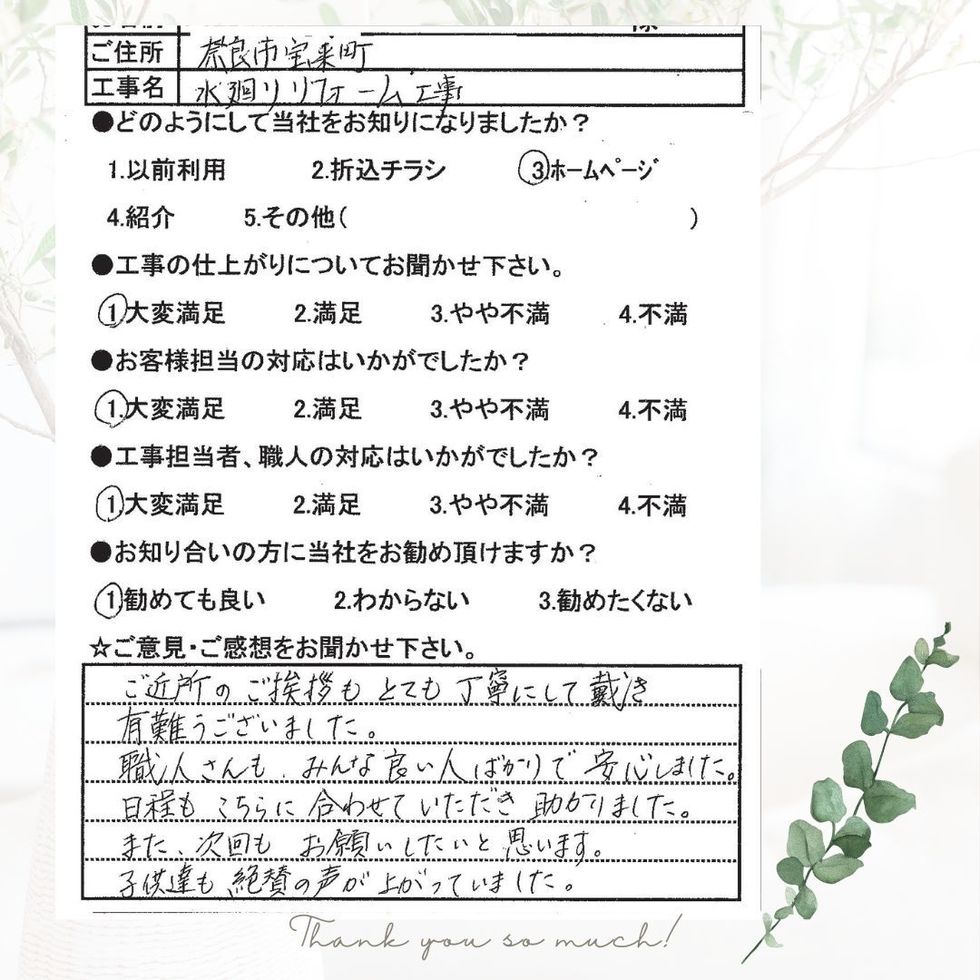 ご住所 奈良市宝来町
工事名 水廻りリフォーム工事
●どのようにして当社をお知りになりましたか？
1.以前利用 2.折込チラシ 3.ホームページ
4.紹介 5.その他( )
●工事の仕上がりについてお聞かせ下さい。
1.大変満足 2.満足 3.やや不満 4.不満
●お客様担当の対応はいかがでしたか？
1.大変満足 2.満足 3.やや不満 4.不満
●工事担当者、職人の対応はいかがでしたか？
1.大変満足 2.満足 3.やや不満 4.不満
●お知り合いの方に当社をお勧め頂けますか？
1.勧めても良い 2.わからない 3.勧めたくない
☆ご意見・ご感想をお聞かせ下さい。
ご近所のご挨拶もとても丁寧にして戴き
有難うございました。
職人さんも、みんな良い人ばかりで安心しました。
日程もこちらに合わせていただき助かりました。
また、次回もお願いしたいと思います。
子供達も絶賛の声が上がっていました。
Thank you so much!